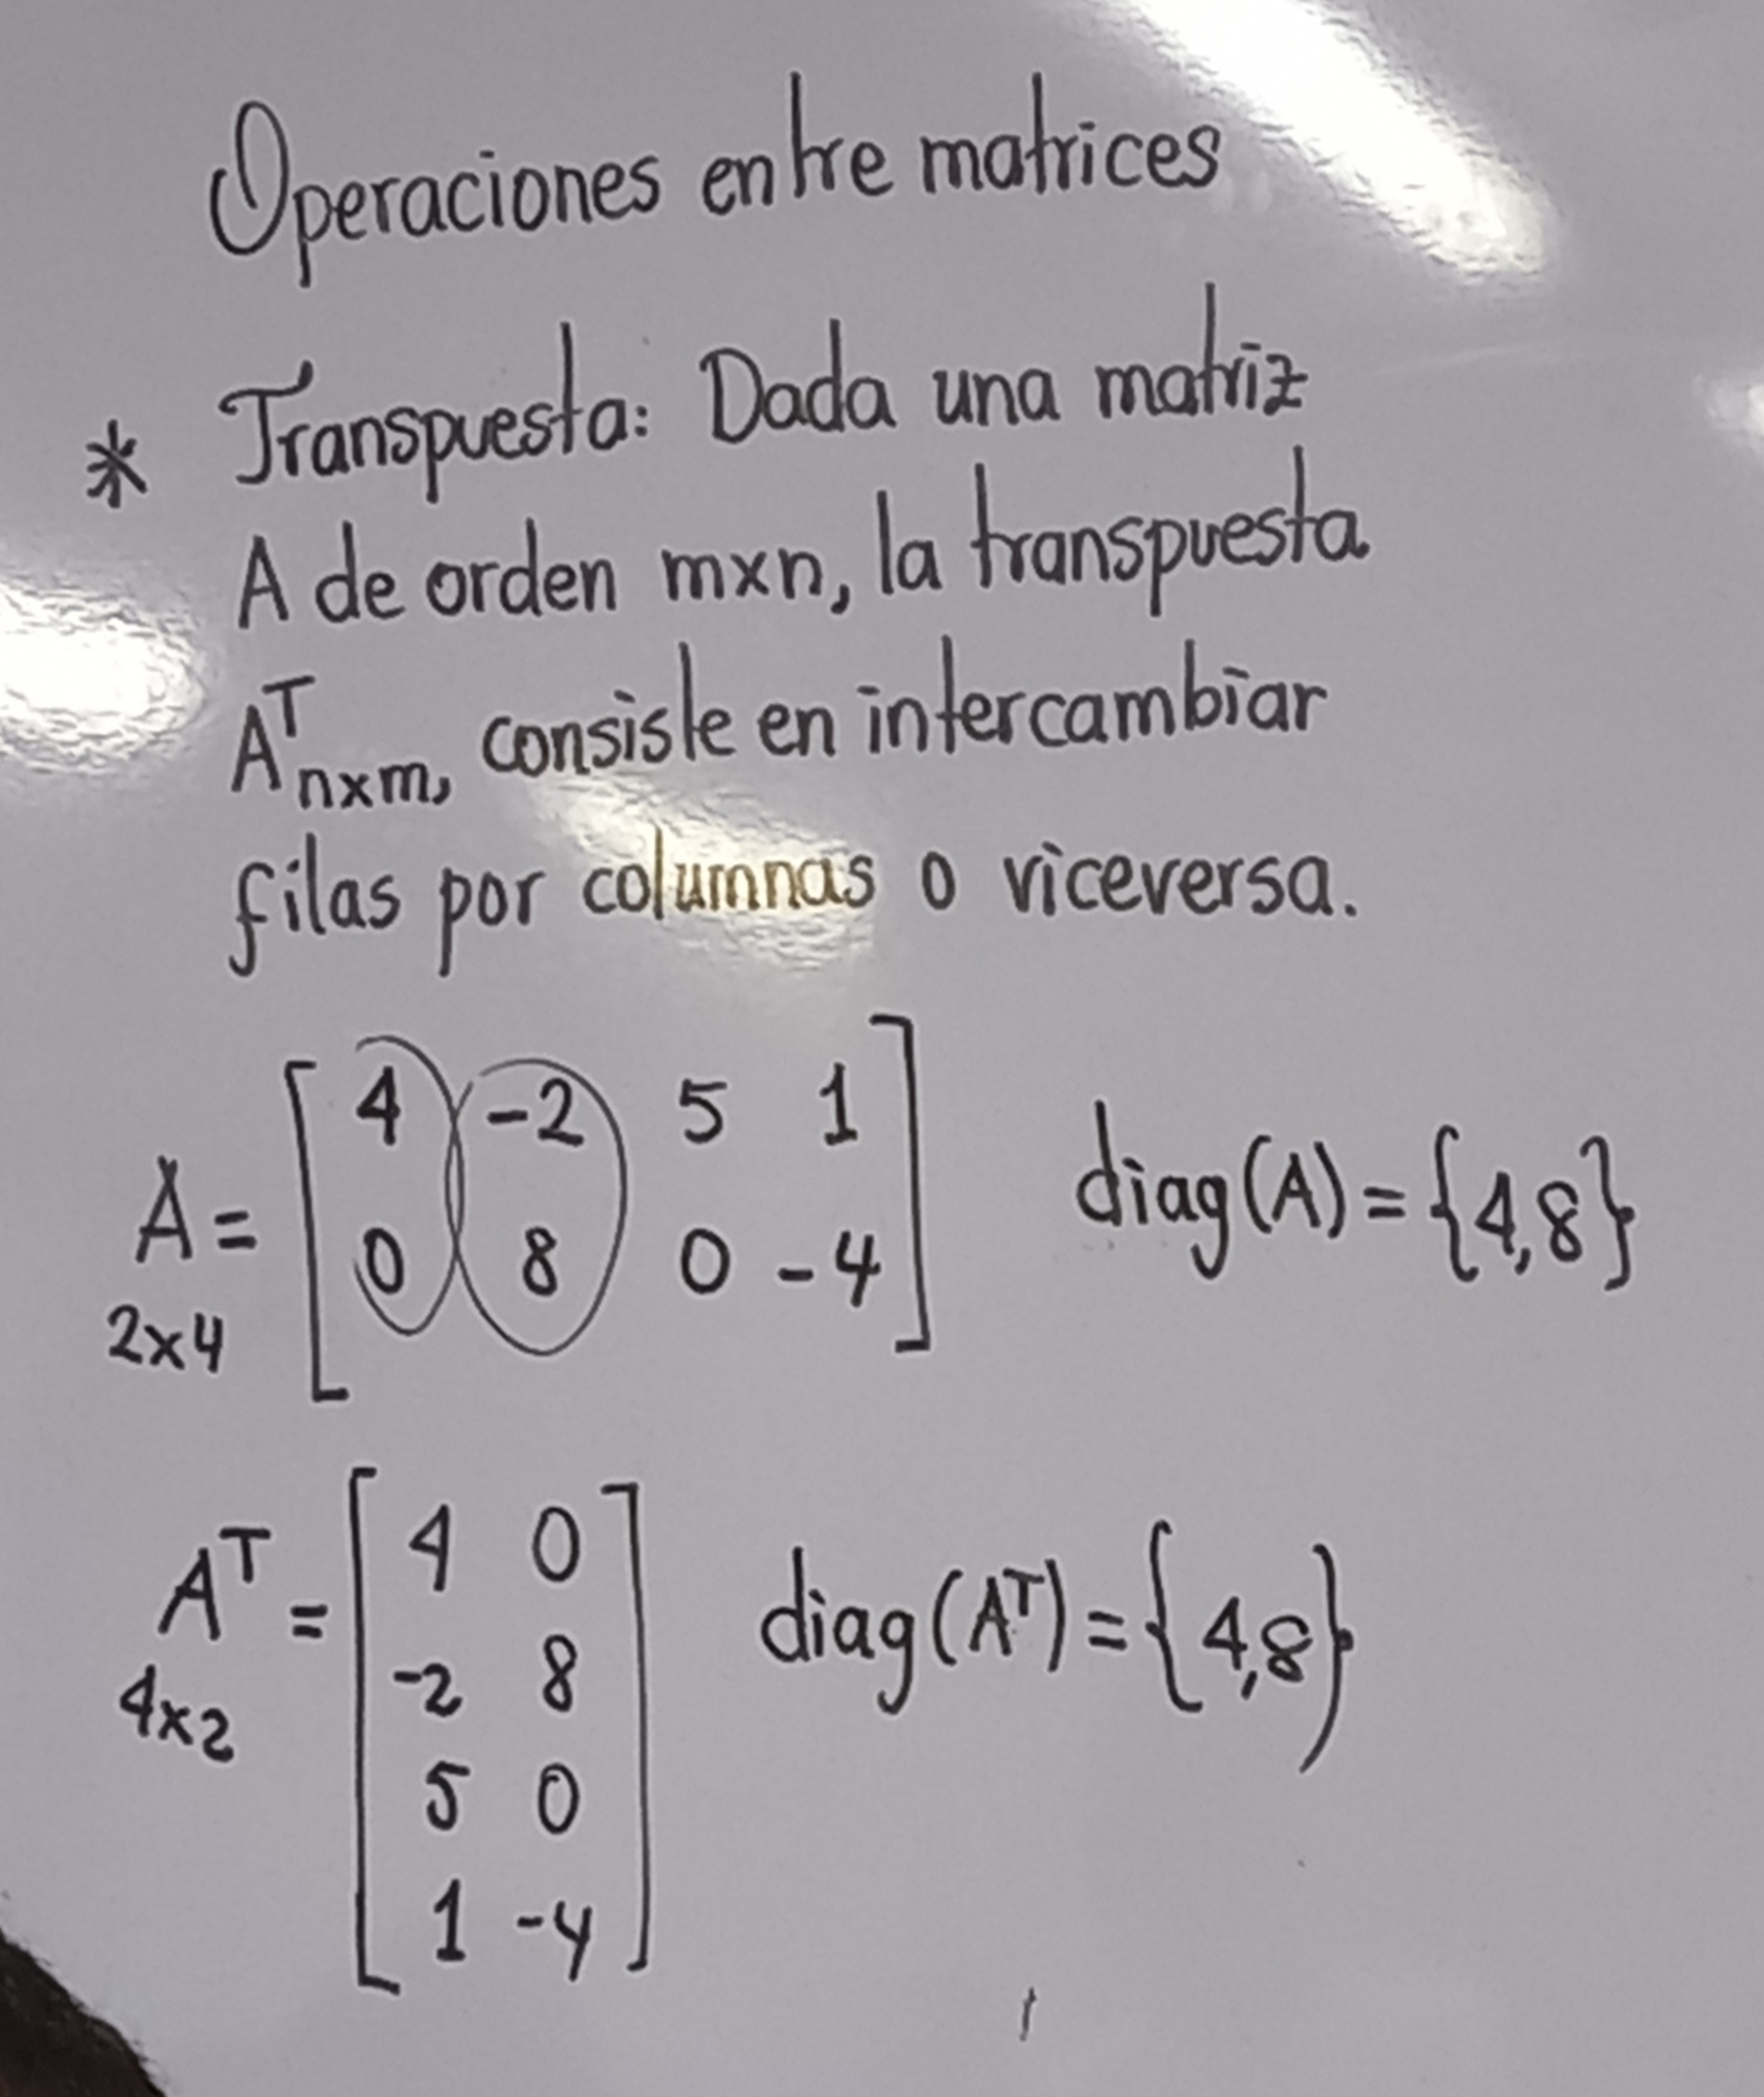 Operaciones entre matrices
* Transpuesta: Dada una matriz
A de orden mxn, la transpuesta
A^T nxm, consiste en intercambiar
filas por columnas o viceversa.
A = [ 4 -2 5 1
0 8 0 -4 ]
2x4
diag(A) = {4,8}
A^T = [ 4 0
-2 8
5 0
1 -4 ]
4x2
diag(A^T) = {4,8}